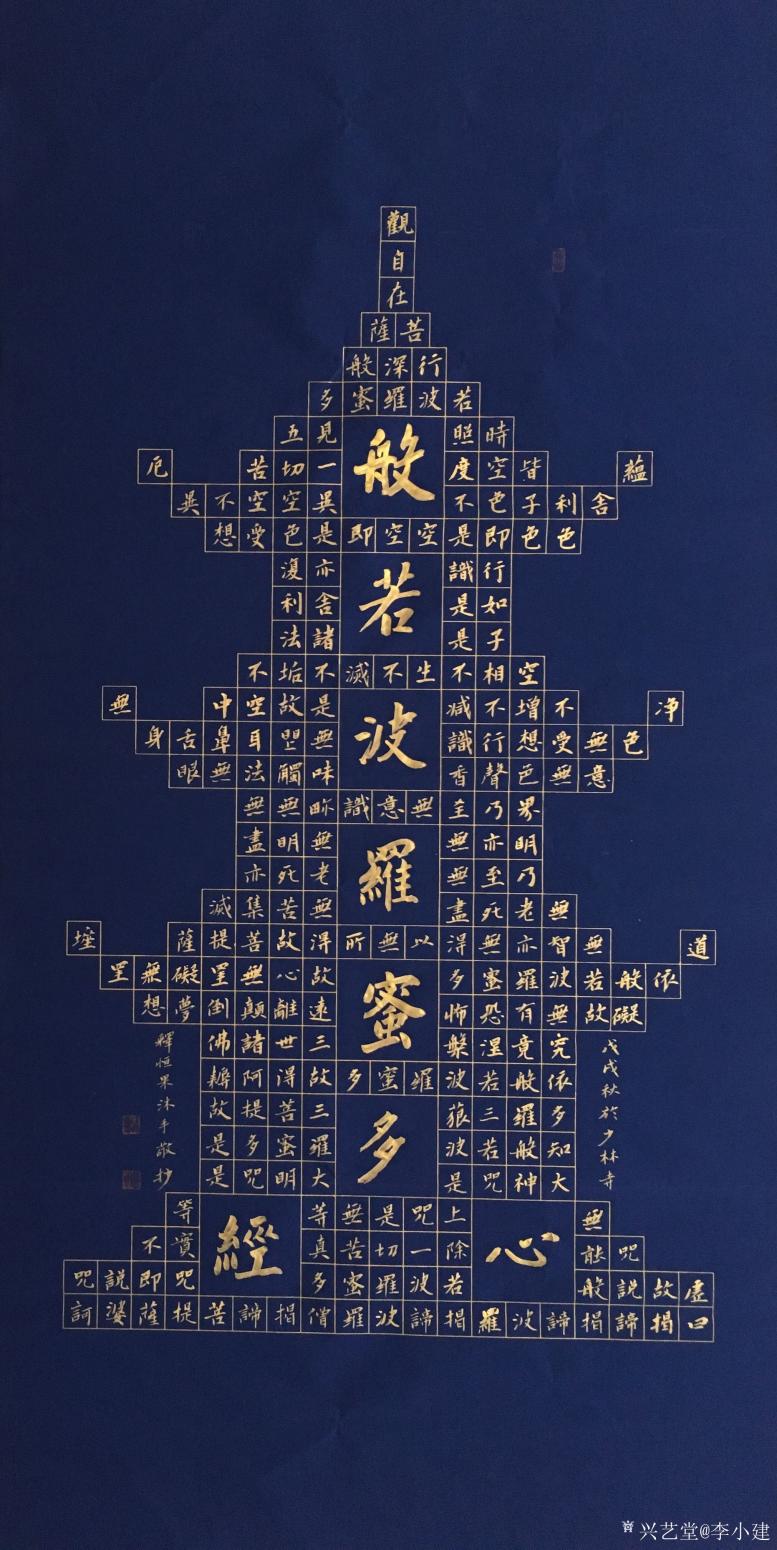 觀
自
在
菩薩
行深般
若波羅蜜多
時照見五
蘊皆空度一切苦厄
舍利子色不異空空不異
色色即是空空即是色受想
行識亦復
如是舍利
子是諸法
空相不生不滅不垢不
净不增不減是故空中無
色無受想行識無眼耳鼻舌身
意無色聲香味觸法無眼
界乃至無意識界無無
明亦無無明盡
乃至無老死亦
無老死盡無苦集滅
道無智亦無得以無所得故菩提薩埵
依般若波羅蜜多故心無罣礙無罣
礙故無有恐怖遠離顛倒夢想
究竟涅槃三世諸佛
依般若波羅蜜多故得阿耨
多羅三藐三菩提故
知般若波羅蜜多是
大神咒是大明咒是
無上咒是無等等
咒能除一切苦真實不
虛故説般若波羅蜜多咒即説咒
曰揭諦揭諦波羅揭諦波羅僧揭諦菩提薩婆訶
般若波羅蜜多心經
戊戌秋於少林寺
釋恒果沐手敬抄
兴艺堂@李小建